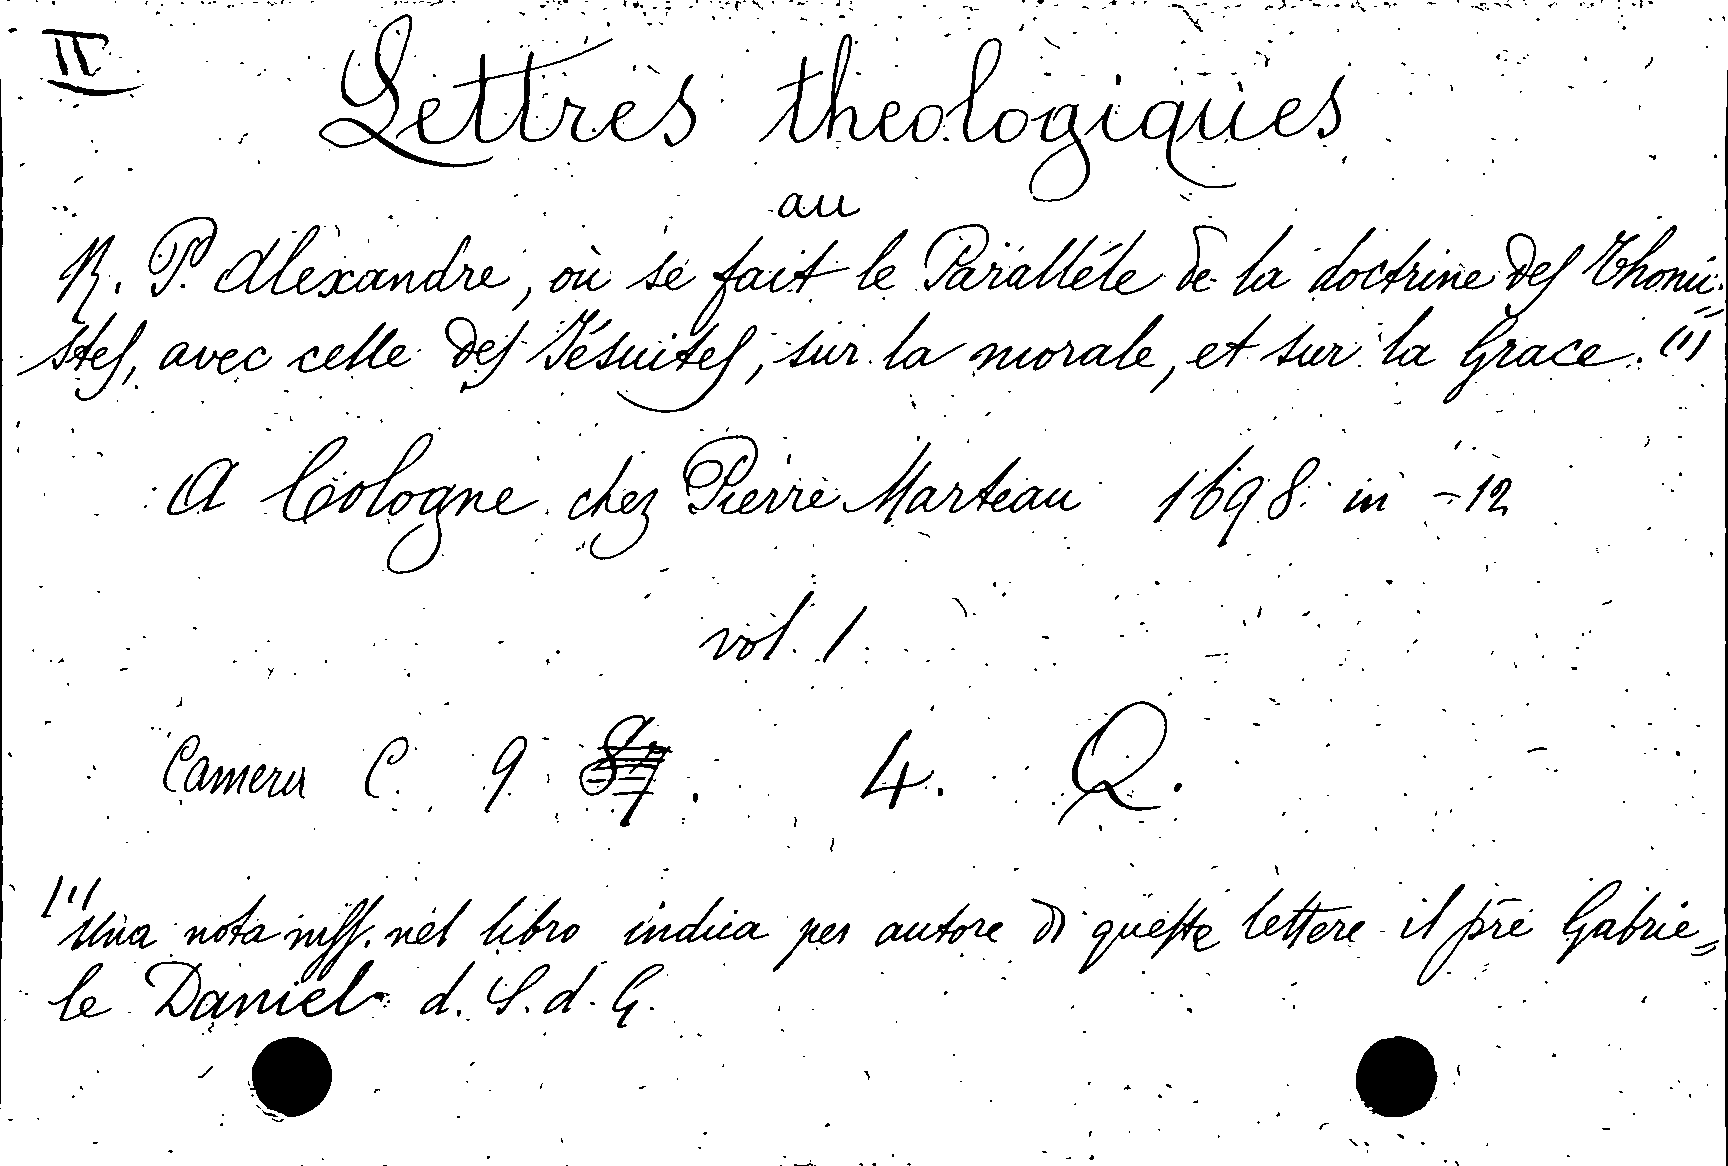 II
Lettres theologiques
au
R. P. Alexandre, où se fait le Paralléle de la doctrine des Thomi=
stes, avec celle des Jésuites, sur la morale, et sur la Grace. (1)
A Cologne chez Pierre Marteau 1698 in -12
vol. 1
Camera C. 9 . 4. Q.
(1) Una nota mss. nel libro indica per autore di queste lettere il pre Gabrie=
le Daniel d. S. d. G.